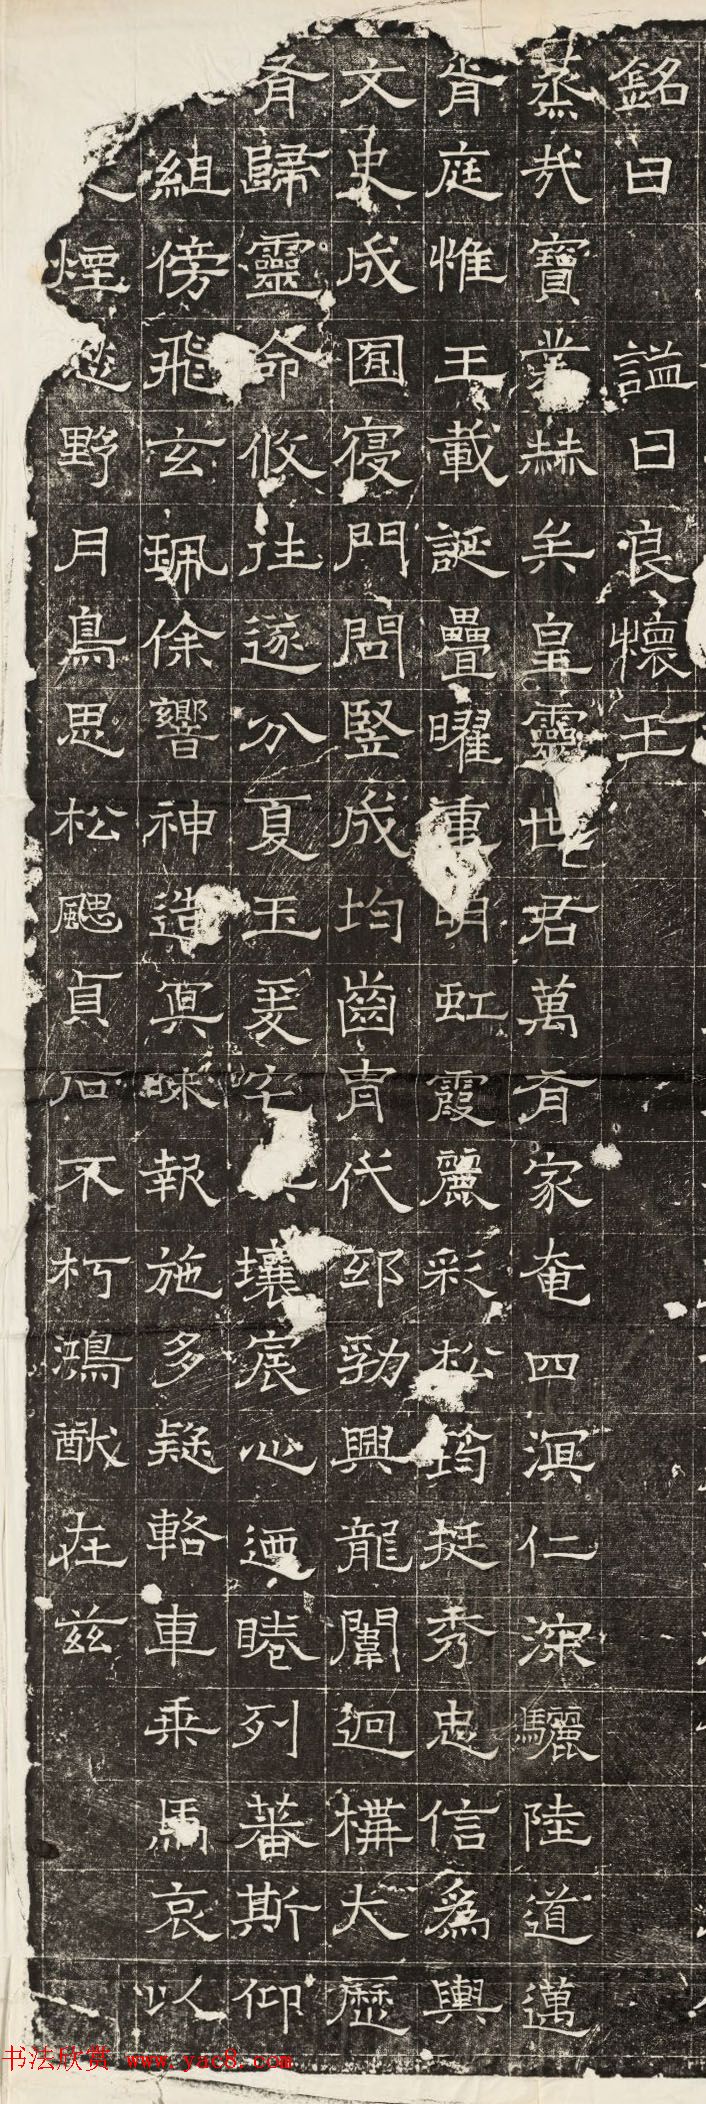 銘曰 諡曰浪懷王
蒸哉寶業赫矣皇靈世君萬有家奄四溟仁深驪陸道邁
胥庭惟王載誕疊曜重明虹霞麗彩松筠挺秀忠信爲輿
文史成囿寢門問豎成均齒胄代邸勃興龍闈迥構大歷
有歸靈命攸往遂分夏玉爰宅壤宸心迺睠列蕃斯仰
組傍飛玄珮徐響神造冥昧報施多疑輅車乘馬哀以
煙野月鳥思松颸貞石不朽鴻猷在茲
书法欣赏 www.yac8.com